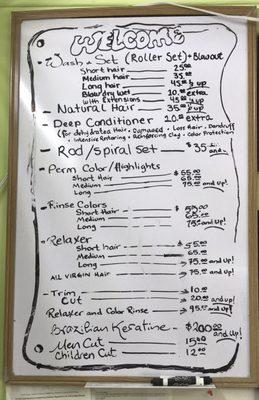 WELCOME
- Wash + Set (Roller Set) + Blowout
Short hair 25.00
Medium hair 35.00
Long hair 45.00 & up
Blow dry wet 10.00 extra
with Extensions 45.00 & up
Natural Hair 35.00 & up
- Deep Conditioner 10.00 extra
(For dehydrated Hair, Damaged + Loss Hair, Dandruff
+ Intensive Restoring + Reinforcing Clay + Color Protection
- Rod/Spiral Set $35 and
- Perm Color/Highlights
Short Hair $55.00
Medium 65.00
Long 75.00 and up!
- Rinse Colors
Short Hair $55.00
Medium 65.00
Long 75.00 and up!
- Relaxer
Short hair $55.00
Medium 65.00
Long 75.00 and up!
ALL VIRGIN HAIR $75.00 and up!
- Trim 10.00
Cut 20.00 and up!
Relaxer and Color Rinse $95.00 and up!
Brazilian Keratine $200.00 and up!
Men Cut 15.00
Children Cut 12.00